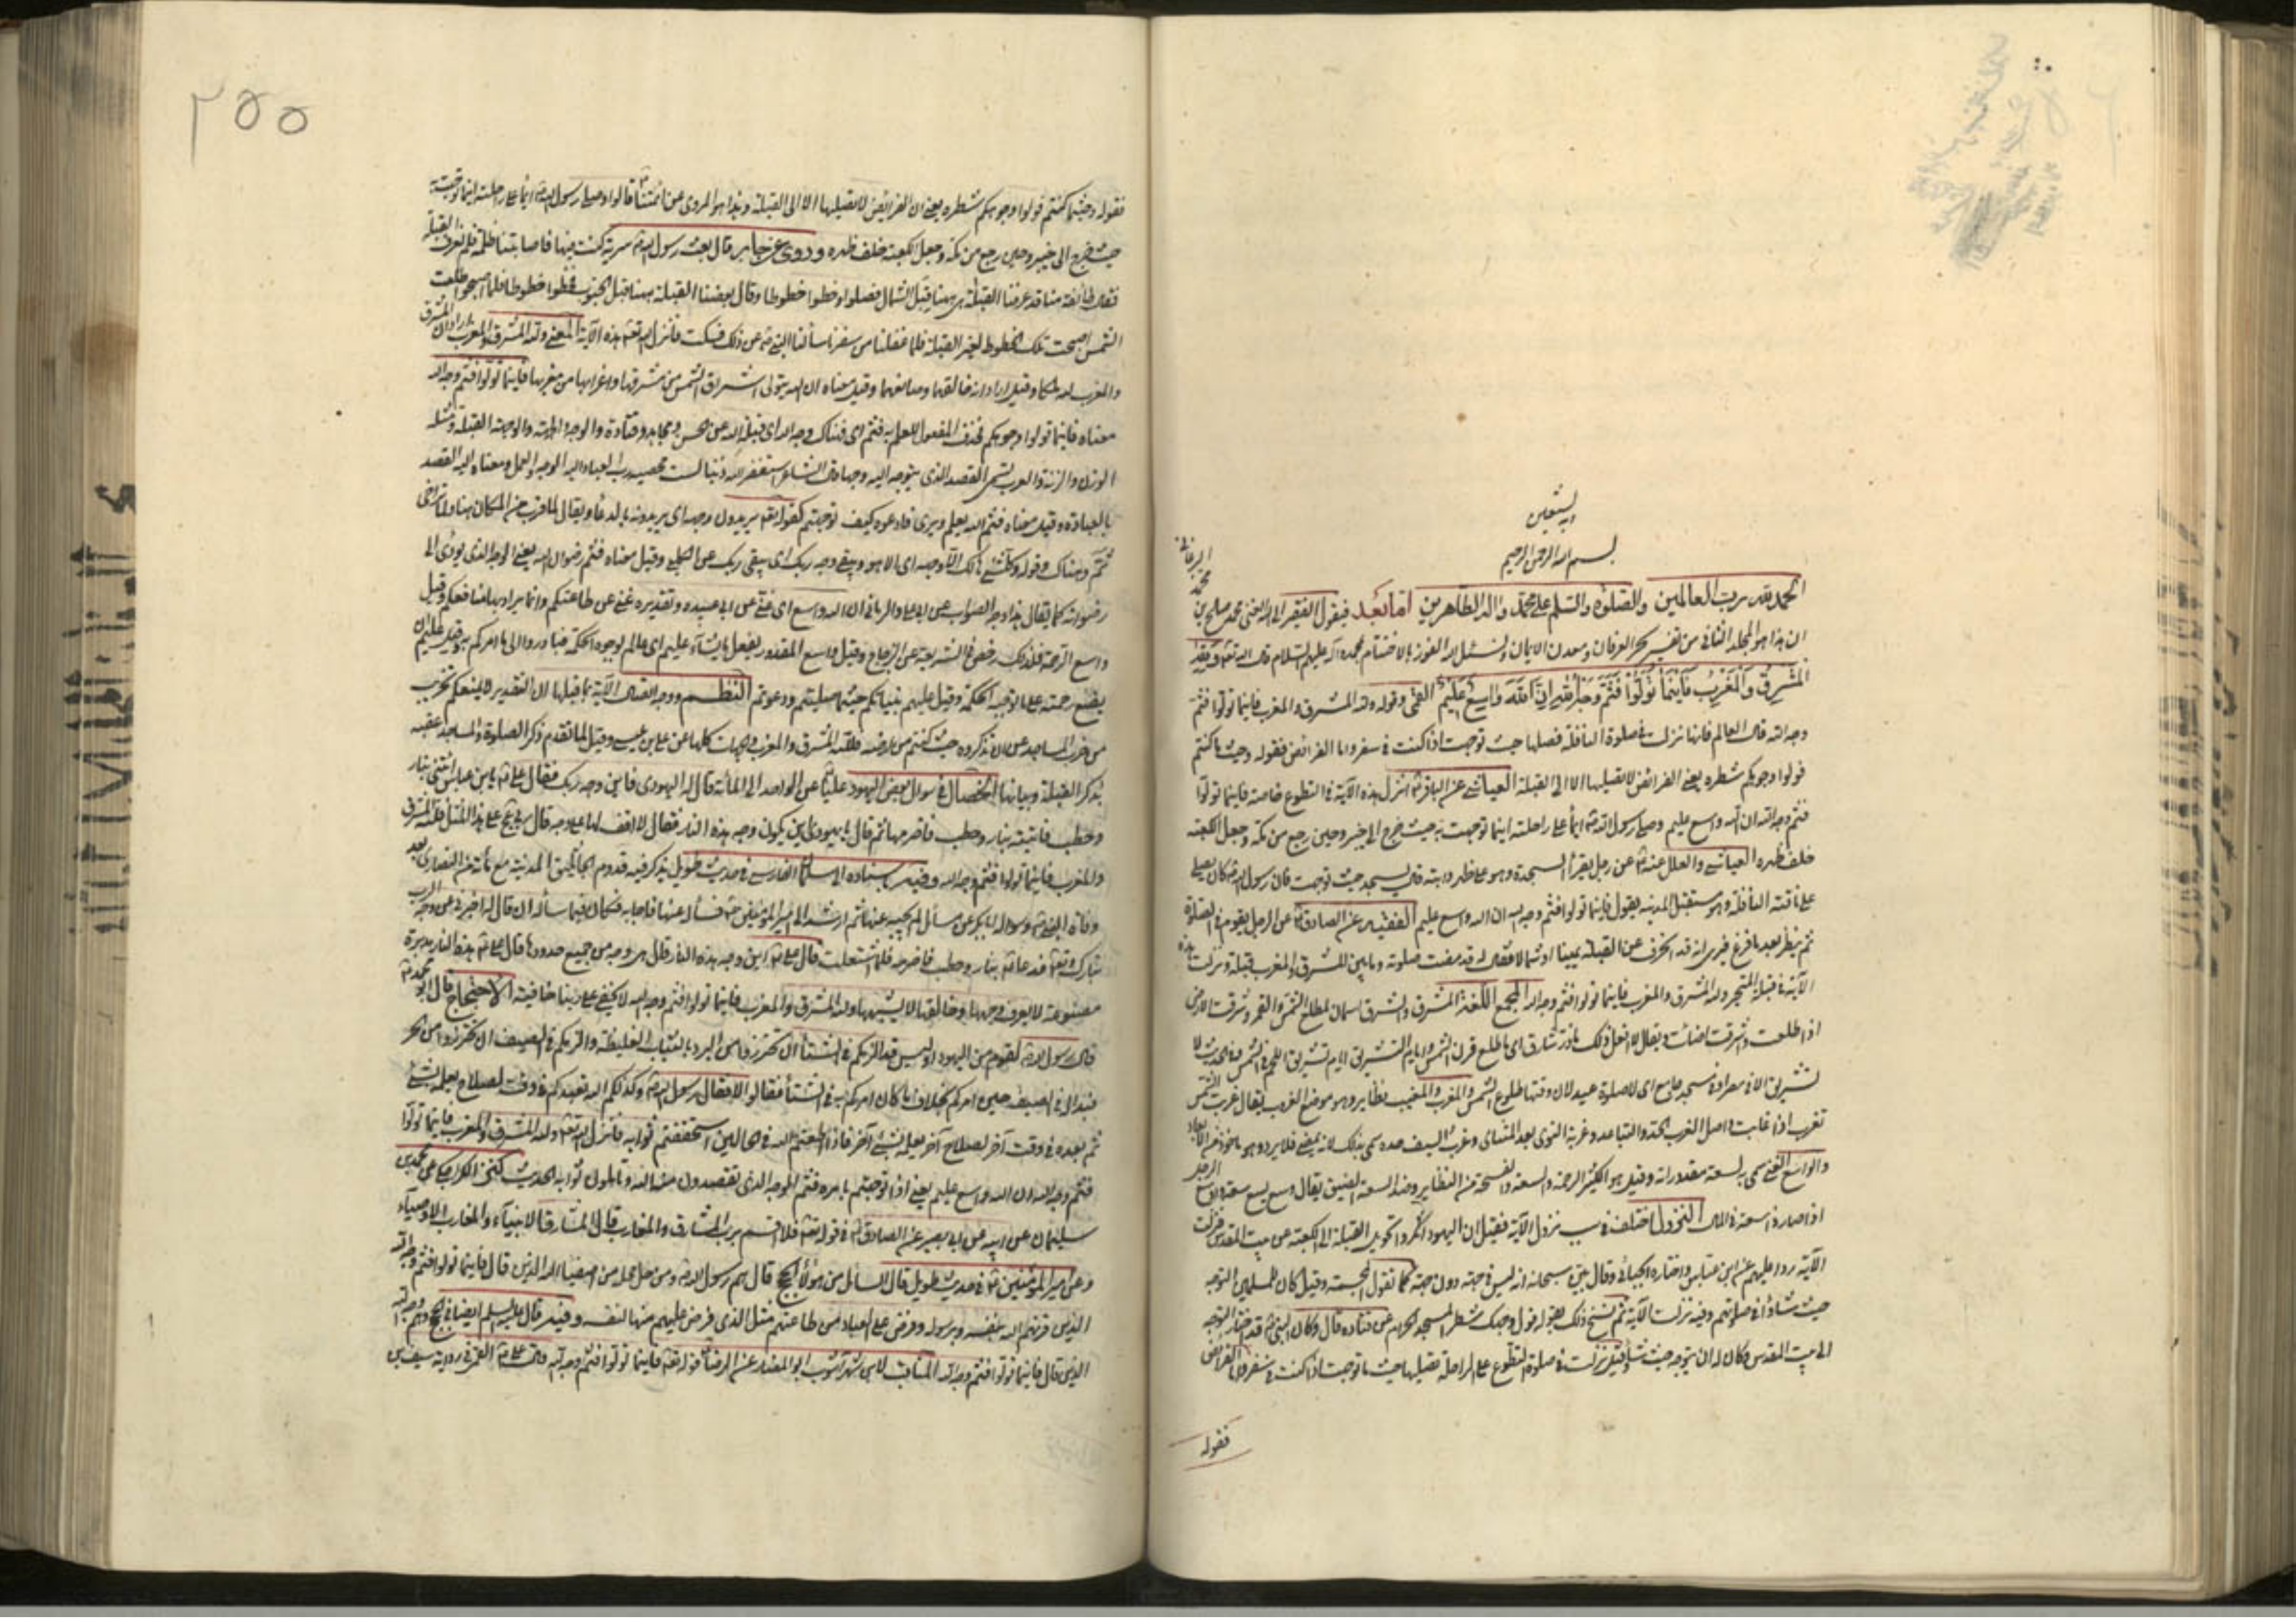 وبه نستعين
بسم الله الرحمن الرحيم
الحمد لله رب العالمين والصلوة والسلم على محمد واله الطاهرين اما بعد فيقول الفقير الى الله الغنى محمد صالح بن
محمد البرغانى
ان هذا هو المجلد الثانى من تفسير بحر العرفان ومعدن الايمان ونسئل الله الفوز بالاختتام بمحمد وآله عليهم السلام قال الله تعالى ولله
المشرق والمغرب فأينما تولوا فثم وجه الله ان الله واسع عليم القمى وقوله ولله المشرق والمغرب فاينما تولوا فثم
وجه الله قال العالم فانها نزلت فى صلوة النافلة فصلها حيث توجهت اذا كنت فى سفر واما الفرائض فقوله وحيث ما كنتم
فولوا وجوهكم شطره يعنى الفرائض لا تصليها الا الى القبلة العياشى عن الباقر ع انزل هذه الآية فى التطوع خاصة فاينما تولوا
فثم وجه الله ان الله واسع عليم وصلى رسول الله ص ايماء على راحلته اينما توجهت به حيث خرج الى خيبر وحين رجع من مكة وجعل الكعبة
خلف ظهره العياشى والعلل عنه ع عن رجل يقرأ السجدة وهو على ظهر دابته قال يسجد حيث توجهت فان رسول الله ص كان يصلى
على ناقته النافلة وهو مستقبل المدينة يقول فاينما تولوا فثم وجه الله ان الله واسع عليم الفقيه عن الصادق ع عن الرجل يقوم فى الصلوة
ثم ينظر بعد ما فرغ فيرى انه قد انحرف عن القبلة يمينا او شمالا فقال له قد مضت صلوته وما بين المشرق والمغرب قبلة ونزلت هذه
الآية فى قبلة المتحير ولله المشرق والمغرب فاينما تولوا فثم وجه الله المجمع اللغة المشرق والشرق اسمان لمطلع الشمس والقمر وشرقت الشمس
اذا طلعت واشرقت اضائت ويقال لا افعل ذلك ما ذر شارق اى ما طلع قرن الشمس وايام التشريق ايام تشريق اللحم فى الشمس وفى الحديث لا
تشريق الا فى مصر او فى مسجد جامع اى لا صلوة عيد لان وقتها طلوع الشمس والمغرب والمغيب نظاير وهو موضع الغروب يقال غربت الشمس
تغرب اذا غابت واصل الغرب الحد والتباعد وغربة النوى بعد المنتاى وغرب السيف حده سمى بذلك لانه يمضى فلا يرد وهو ماخوذ من الابعاد
والواسع الغنى سمى به لسعة مقدوراته وقيل هو الكثير الرحمة والسعة والفسحة من النظاير وضد السعة الضيق يقال وسع يسع سعة واوسع الرجل
اذا صار ذا سعة فى المال النزول اختلف فى سبب نزول الآية فقيل ان اليهود انكروا تحويل القبلة الى الكعبة عن بيت المقدس فنزلت
الآية ردا عليهم عن ابن عباس واختاره الجبائى وقال بين سبحانه انه ليس فى جهة دون جهة كما تقول المجسمة وقيل كان للمسلمين التوجه
حيث شاؤا فى صلوتهم وفيه نزلت الآية ثم نسخ ذلك بقوله فول وجهك شطر المسجد الحرام عن قتادة قال وكان النبى ص قد اختار التوجه
الى بيت المقدس وكان له ان يتوجه حيث شاء وقيل نزلت فى صلوة التطوع على الراحلة تصليها حيث ما توجهت اذا كنت فى سفر واما الفرائض
فقوله
٢٥٥
فقوله وحيثما كنتم فولوا وجوهكم شطره يعنى ان الفرائض لا تصليها الا الى القبلة وهذا هو المروى عن ائمتنا ع قالوا وصلى رسول الله ص ايماء على راحلته اينما توجهت به
حيث خرج الى خيبر وحين رجع من مكة وجعل الكعبة خلف ظهره وروى عن جابر قال بعث رسول الله ص سرية كنت فيها فاصابتنا ظلمة فلم نعرف القبلة
فقالت طائفة منا قد عرفنا القبلة هى هيهنا قبل الشمال فصلوا وخطوا خطوطا وقال بعضنا القبلة هيهنا قبل الجنوب فخطوا خطوطا فلما اصبحوا وطلعت
الشمس اصبحت تلك الخطوط لغير القبلة فلما قفلنا من سفرنا سألنا النبى ص عن ذلك فسكت فانزل الله تعالى هذه الآية المعنى ولله المشرق والمغرب اراد ان المشرق
والمغرب لله ملكا وقيل اراد انه خالقهما وصانعهما وقيل معناه ان الله يتولى اشراق الشمس من مشرقها واغرابها من مغربها فاينما تولوا فثم وجه الله
معناه فاينما تولوا وجوهكم فحذف المفعول للعلم به فثم اى فهناك وجه الله اى قبلة الله عن الحسن ومجاهد وقتادة والوجه والجهة والوجهة القبلة ومثله
الوزن والزنة والعرب تسمى القصد الذى يتوجه اليه وجها قال الشاعر استغفر الله ذنبا لست محصيه رب العباد اليه الوجه والعمل ومعناه اليه القصد
بالعبادة وقيل معناه فثم الله يعلم ويرى فادعوه كيف توجهتم كقوله تعالى يريدون وجهه اى يريدونه بالدعاء ويقال لما قرب من المكان هنا ولما تراخى
ثم وهناك وقوله وكل شئ هالك الا وجهه اى الا هو ويبقى وجه ربك اى يبقى ربك عن الكلبى وقيل معناه فثم رضوان الله يعنى الوجه الذى يؤدى الى
رضوانه كما يقال هذا وجه الصواب عن ابى على والرمانى ان الله واسع اى غنى عن ابى عبيدة وتقديره غنى عن طاعتكم وانما يريدها لمنافعكم وقيل
واسع الرحمة فلذلك رخص فى الشريعة عن الزجاج وقيل واسع المقدور يفعل ما يشاء عليم اى عالم بوجوه الحكمة فبادروا الى ما امركم به وقيل عليم اين
يضع رحمته على ما توجبه الحكمة وقيل عليم بنياتكم حيثما صليتم ودعوتم النظم ووجه اتصال الآية بما قبلها ان التقدير لا يمنعكم تخريب
من خرب المساجد عن ان تذكروه حيث كنتم من ارضه فلله المشرق والمغرب والجهات كلها عن على بن عيسى وقيل لما تقدم ذكر الصلوة والمساجد عقبه
بذكر القبلة وبيانها الخصال فى سؤال بعض اليهود عليا عن الواحد الى المأة قال له اليهودى فاين وجه ربك فقال على ع يا بن عباس ائتنى بنار
وحطب فاتيته بنار وحطب فاضرمها ثم قال يا يهودى اين يكون وجه هذه النار فقال لا اقف لها على وجه قال ربى عز وجل على هذا المثل فلله المشرق
والمغرب فاينما تولوا فثم وجه الله وفيه باسناده الى سلمان الفارسى فى حديث طويل يذكر فيه قدوم الجاثليق المدينة مع مأة من النصارى بعد
وفاة النبى ص وسؤاله ابا بكر عن مسائل لم يجبه عنها ثم ارشد الى امير المؤمنين ع فسأله عنها فاجابه فكان فيما سأله ان قال له اخبرنى عن وجه الرب
تبارك وتعالى فدعا ع بنار وحطب فاضرمه فلما اشتعلت قال على ع اين وجه هذه النار قال هى وجه من جميع حدودها قال على ع هذه النار مدبرة
مصنوعة لا يعرف وجهها وخالقها لا يشبهها ولله المشرق والمغرب فاينما تولوا فثم وجه الله لا يخفى على ربنا خافية الاحتجاج قال ابو محمد ع
قال رسول الله ص لقوم من اليهود اوليس قد الزمكم فى الشتاء ان تحترزوا من البرد بالثياب الغليظة والزمكم فى الصيف ان تحترزوا من الحر
فبدا له فى الصيف حين امركم بخلاف ما كان امركم به فى الشتاء فقالوا لا فقال رسول الله ص وكذلكم الله تعبدكم فى وقت لصلاح يعلمه بشئ
ثم بعده فى وقت آخر لصلاح آخر يعلمه بشئ آخر فاذا اطعتم الله فى الحالين استحققتم ثوابه فانزل الله تعالى ولله المشرق والمغرب فاينما تولوا
فثم وجه الله ان الله واسع عليم يعنى اذا توجهتم بامره فثم الوجه الذى تقصدون منه الله وتاملون ثوابه الحديث كنز الكراجكى عن محمد بن
سليمان عن ابيه عن ابى بصير عن الصادق ع فى قوله تعالى فلا اقسم برب المشارق والمغارب قال المشارق الانبياء والمغارب الاوصياء
وعن امير المؤمنين ع فى حديث طويل قال السائل من هؤلاء الحجج قال هم رسول الله ص ومن حل محله من اصفياء الله الذين قال فاينما تولوا فثم وجه الله
الذين قرنهم الله بنفسه وبرسوله وفرض على العباد من طاعتهم مثل الذى فرض عليهم منها لنفسه وفيه قال عليه السلم ايضا فى الحجج وهم وجه الله
الذى قال فاينما تولوا فثم وجه الله المناقب لابن شهرآشوب ابو المضا عن الرضا ع قوله تعالى فاينما تولوا فثم وجه الله قال على ع